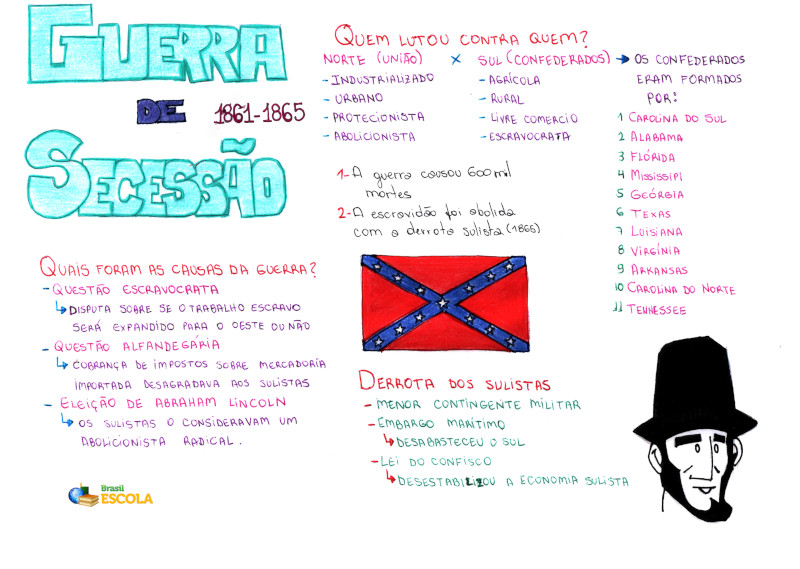 GUERRA
DE 1861-1865
SECESSÃO
QUAIS FORAM AS CAUSAS DA GUERRA?
- QUESTÃO ESCRAVOCRATA
↳ DISPUTA SOBRE SE O TRABALHO ESCRAVO
SERÁ EXPANDIDO PARA O OESTE OU NÃO
- QUESTÃO ALFANDEGÁRIA
↳ COBRANÇA DE IMPOSTOS SOBRE MERCADORIA
IMPORTADA DESAGRADAVA AOS SULISTAS
- ELEIÇÃO DE ABRAHAM LINCOLN
↳ OS SULISTAS O CONSIDERAVAM UM
ABOLICIONISTA RADICAL.
Brasil
ESCOLA
QUEM LUTOU CONTRA QUEM?
NORTE (UNIÃO) x SUL (CONFEDERADOS)
- INDUSTRIALIZADO
- URBANO
- PROTECIONISTA
- ABOLICIONISTA
- AGRÍCOLA
- RURAL
- LIVRE COMERCIO
- ESCRAVOCRATA
→ OS CONFEDERADOS
ERAM FORMADOS
POR:
1 CAROLINA DO SUL
2 ALABAMA
3 FLÓRIDA
4 MISSISSIPI
5 GEÓRGIA
6 TEXAS
7 LUISIANA
8 VIRGÍNIA
9 ARKANSAS
10 CAROLINA DO NORTE
11 TENNESSEE
1- A guerra causou 600 mil
mortes
2- A escravidão foi abolida
com a derrota sulista (1865)
DERROTA DOS SULISTAS
- MENOR CONTINGENTE MILITAR
- EMBARGO MARÍTIMO
↳ DESABASTECEU O SUL
- LEI DO CONFISCO
↳ DESESTABILIZOU A ECONOMIA SULISTA